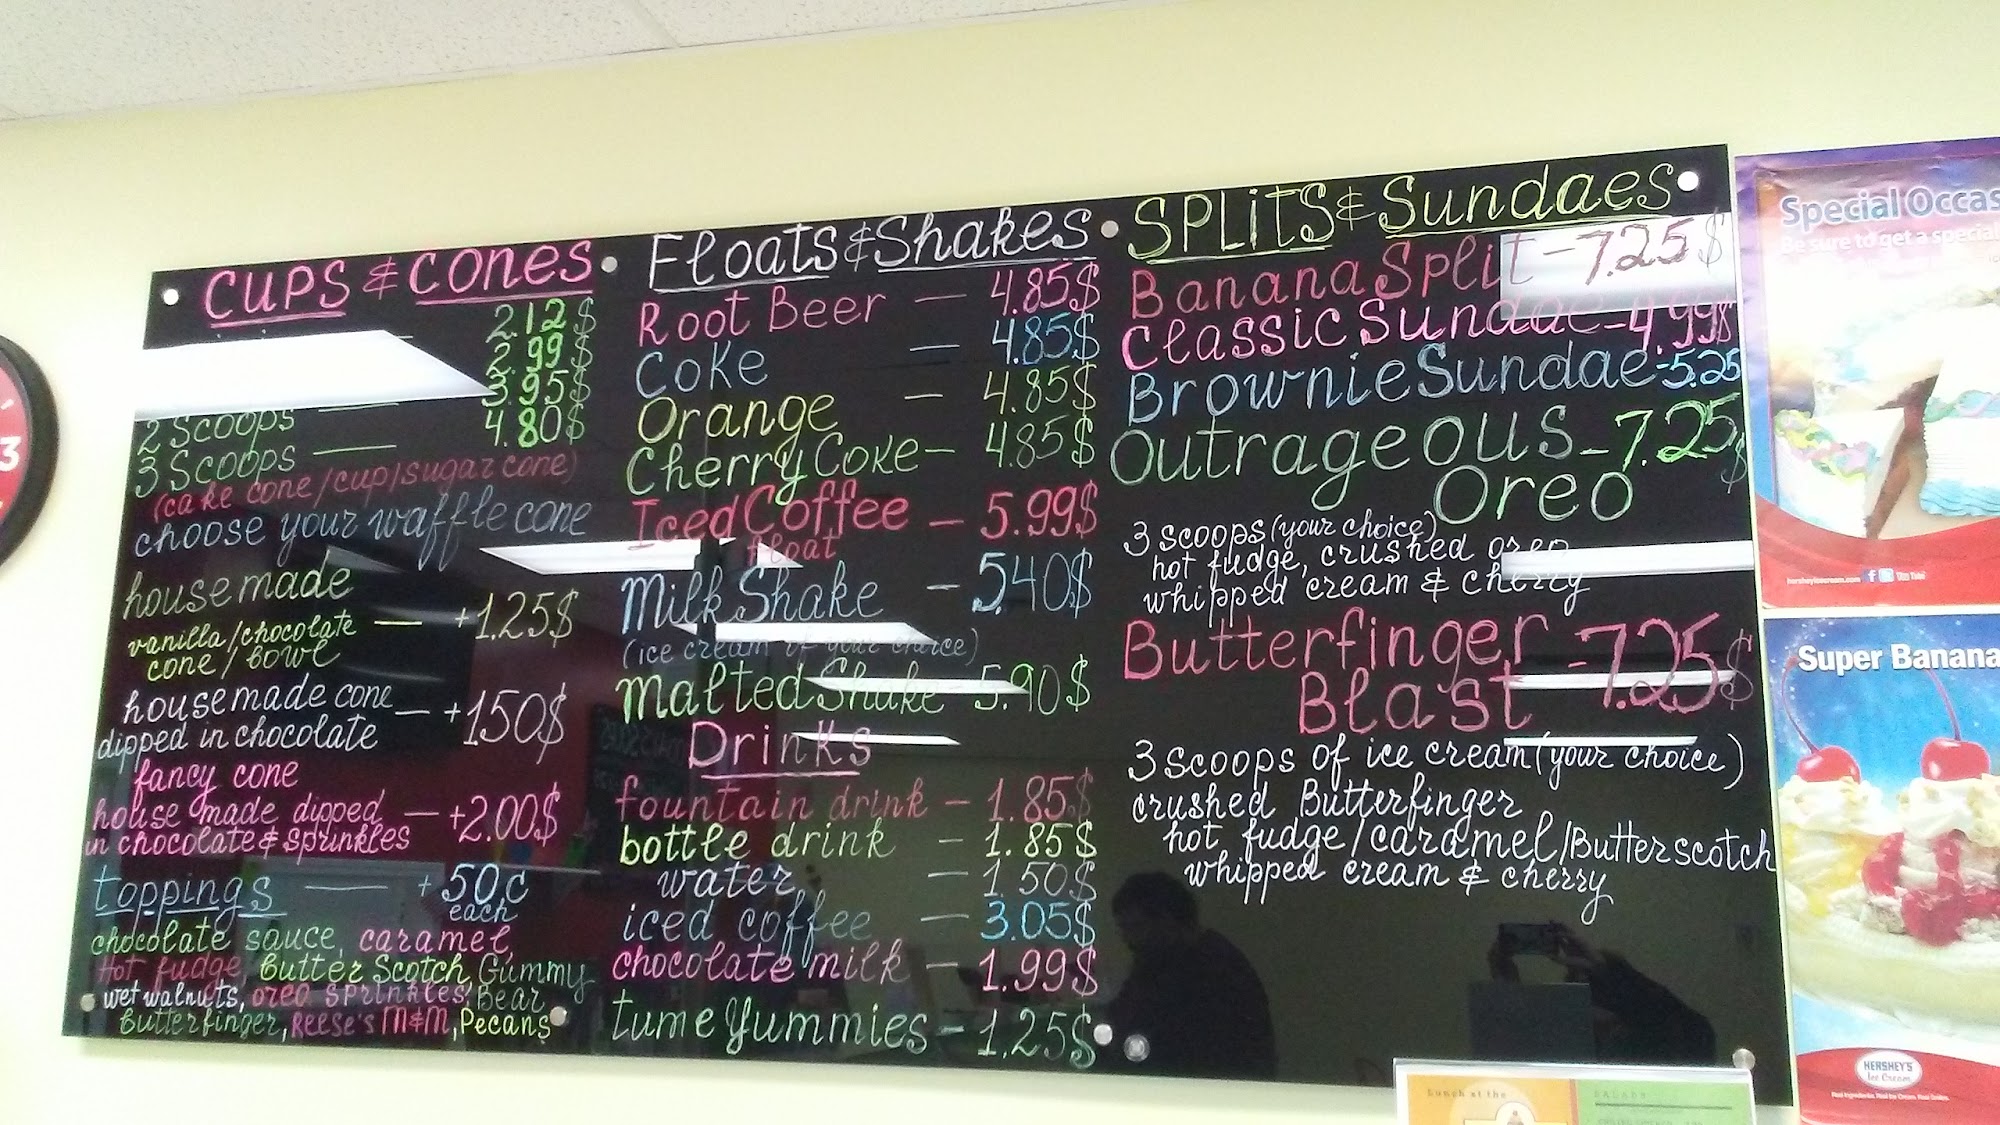 CUPS & CONES
2.12$
2.99$
2 Scoops — 3.95$
3 Scoops — 4.80$
(cake cone/cup/sugar cone)
choose your waffle cone
house made
vanilla/chocolate — +1.25$
cone/bowl
house made cone — +1.50$
dipped in chocolate
fancy cone
house made dipped — +2.00$
in chocolate & sprinkles
toppings — +50¢
each
chocolate sauce, caramel,
Hot fudge, Butter Scotch, Gummy
wet walnuts, oreo sprinkles, Bear
Butterfinger, Reese's M&M, Pecans
Floats & Shakes
Root Beer — 4.85$
Coke — 4.85$
Orange — 4.85$
Cherry Coke — 4.85$
Iced Coffee — 5.99$
float
Milk Shake — 5.40$
(ice cream of your choice)
Malted Shake - 5.90$
Drinks
fountain drink - 1.85$
bottle drink - 1.85$
water — 1.50$
iced coffee — 3.05$
chocolate milk — 1.99$
tume Yummies - 1.25$
SPLITS & Sundaes
Banana Split - 7.25$
Classic Sundae - 4.99$
Brownie Sundae - 5.25
Outrageous - 7.25$
Oreo
3 scoops (your choice)
hot fudge, crushed oreo
whipped cream & cherry
Butterfinger - 7.25$
Blast
3 scoops of ice cream (your choice)
crushed Butterfinger
hot fudge/caramel/Butterscotch
whipped cream & cherry
Special Occas
Be sure to get a special
hersheyicecream.com
Super Banana
HERSHEY'S
Ice Cream
Lunch at the
SALADS
3